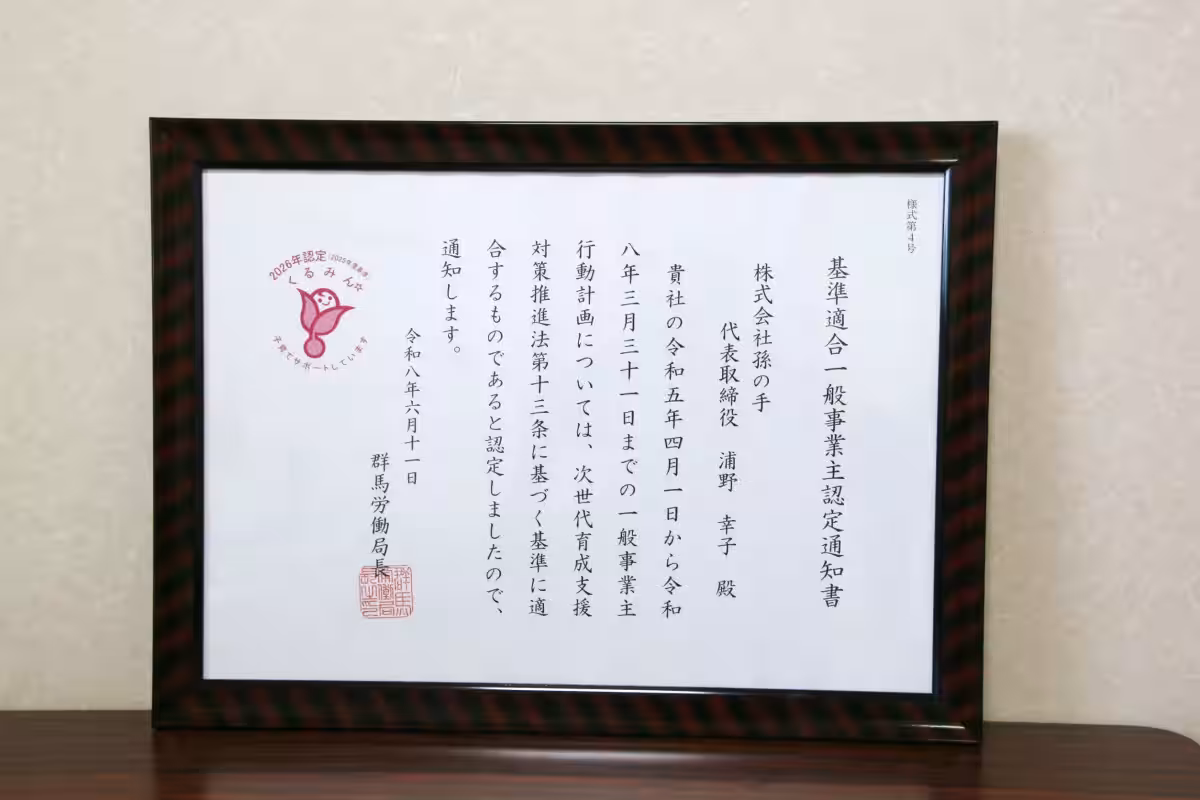 様式第4号
基準適合一般事業主認定通知書
株式会社孫の手
代表取締役 浦野 幸子 殿
貴社の令和五年四月一日から令和
八年三月三十一日までの一般事業主
行動計画については、次世代育成支援
対策推進法第十三条に基づく基準に適
合するものであると認定しましたので、
通知します。
令和八年六月十一日
群馬労働局長
2026年認定(2025年度基準)
くるみん☆
子育てサポートしています